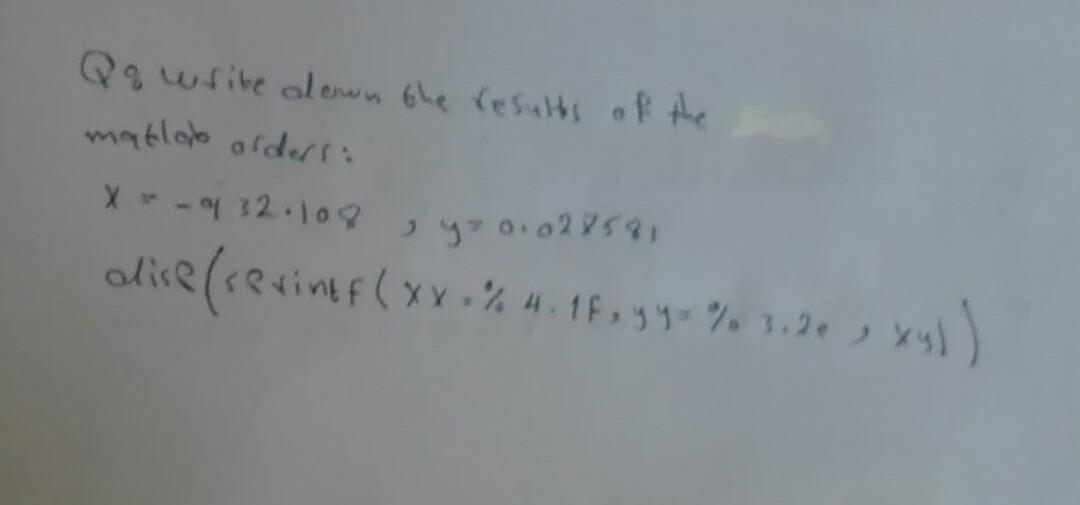 Q: write down the results of the
matlab orders:
x = -932.108 , y = 0.028581
disp(sprintf(xx=%4.1f, yy=%3.2e, xy))